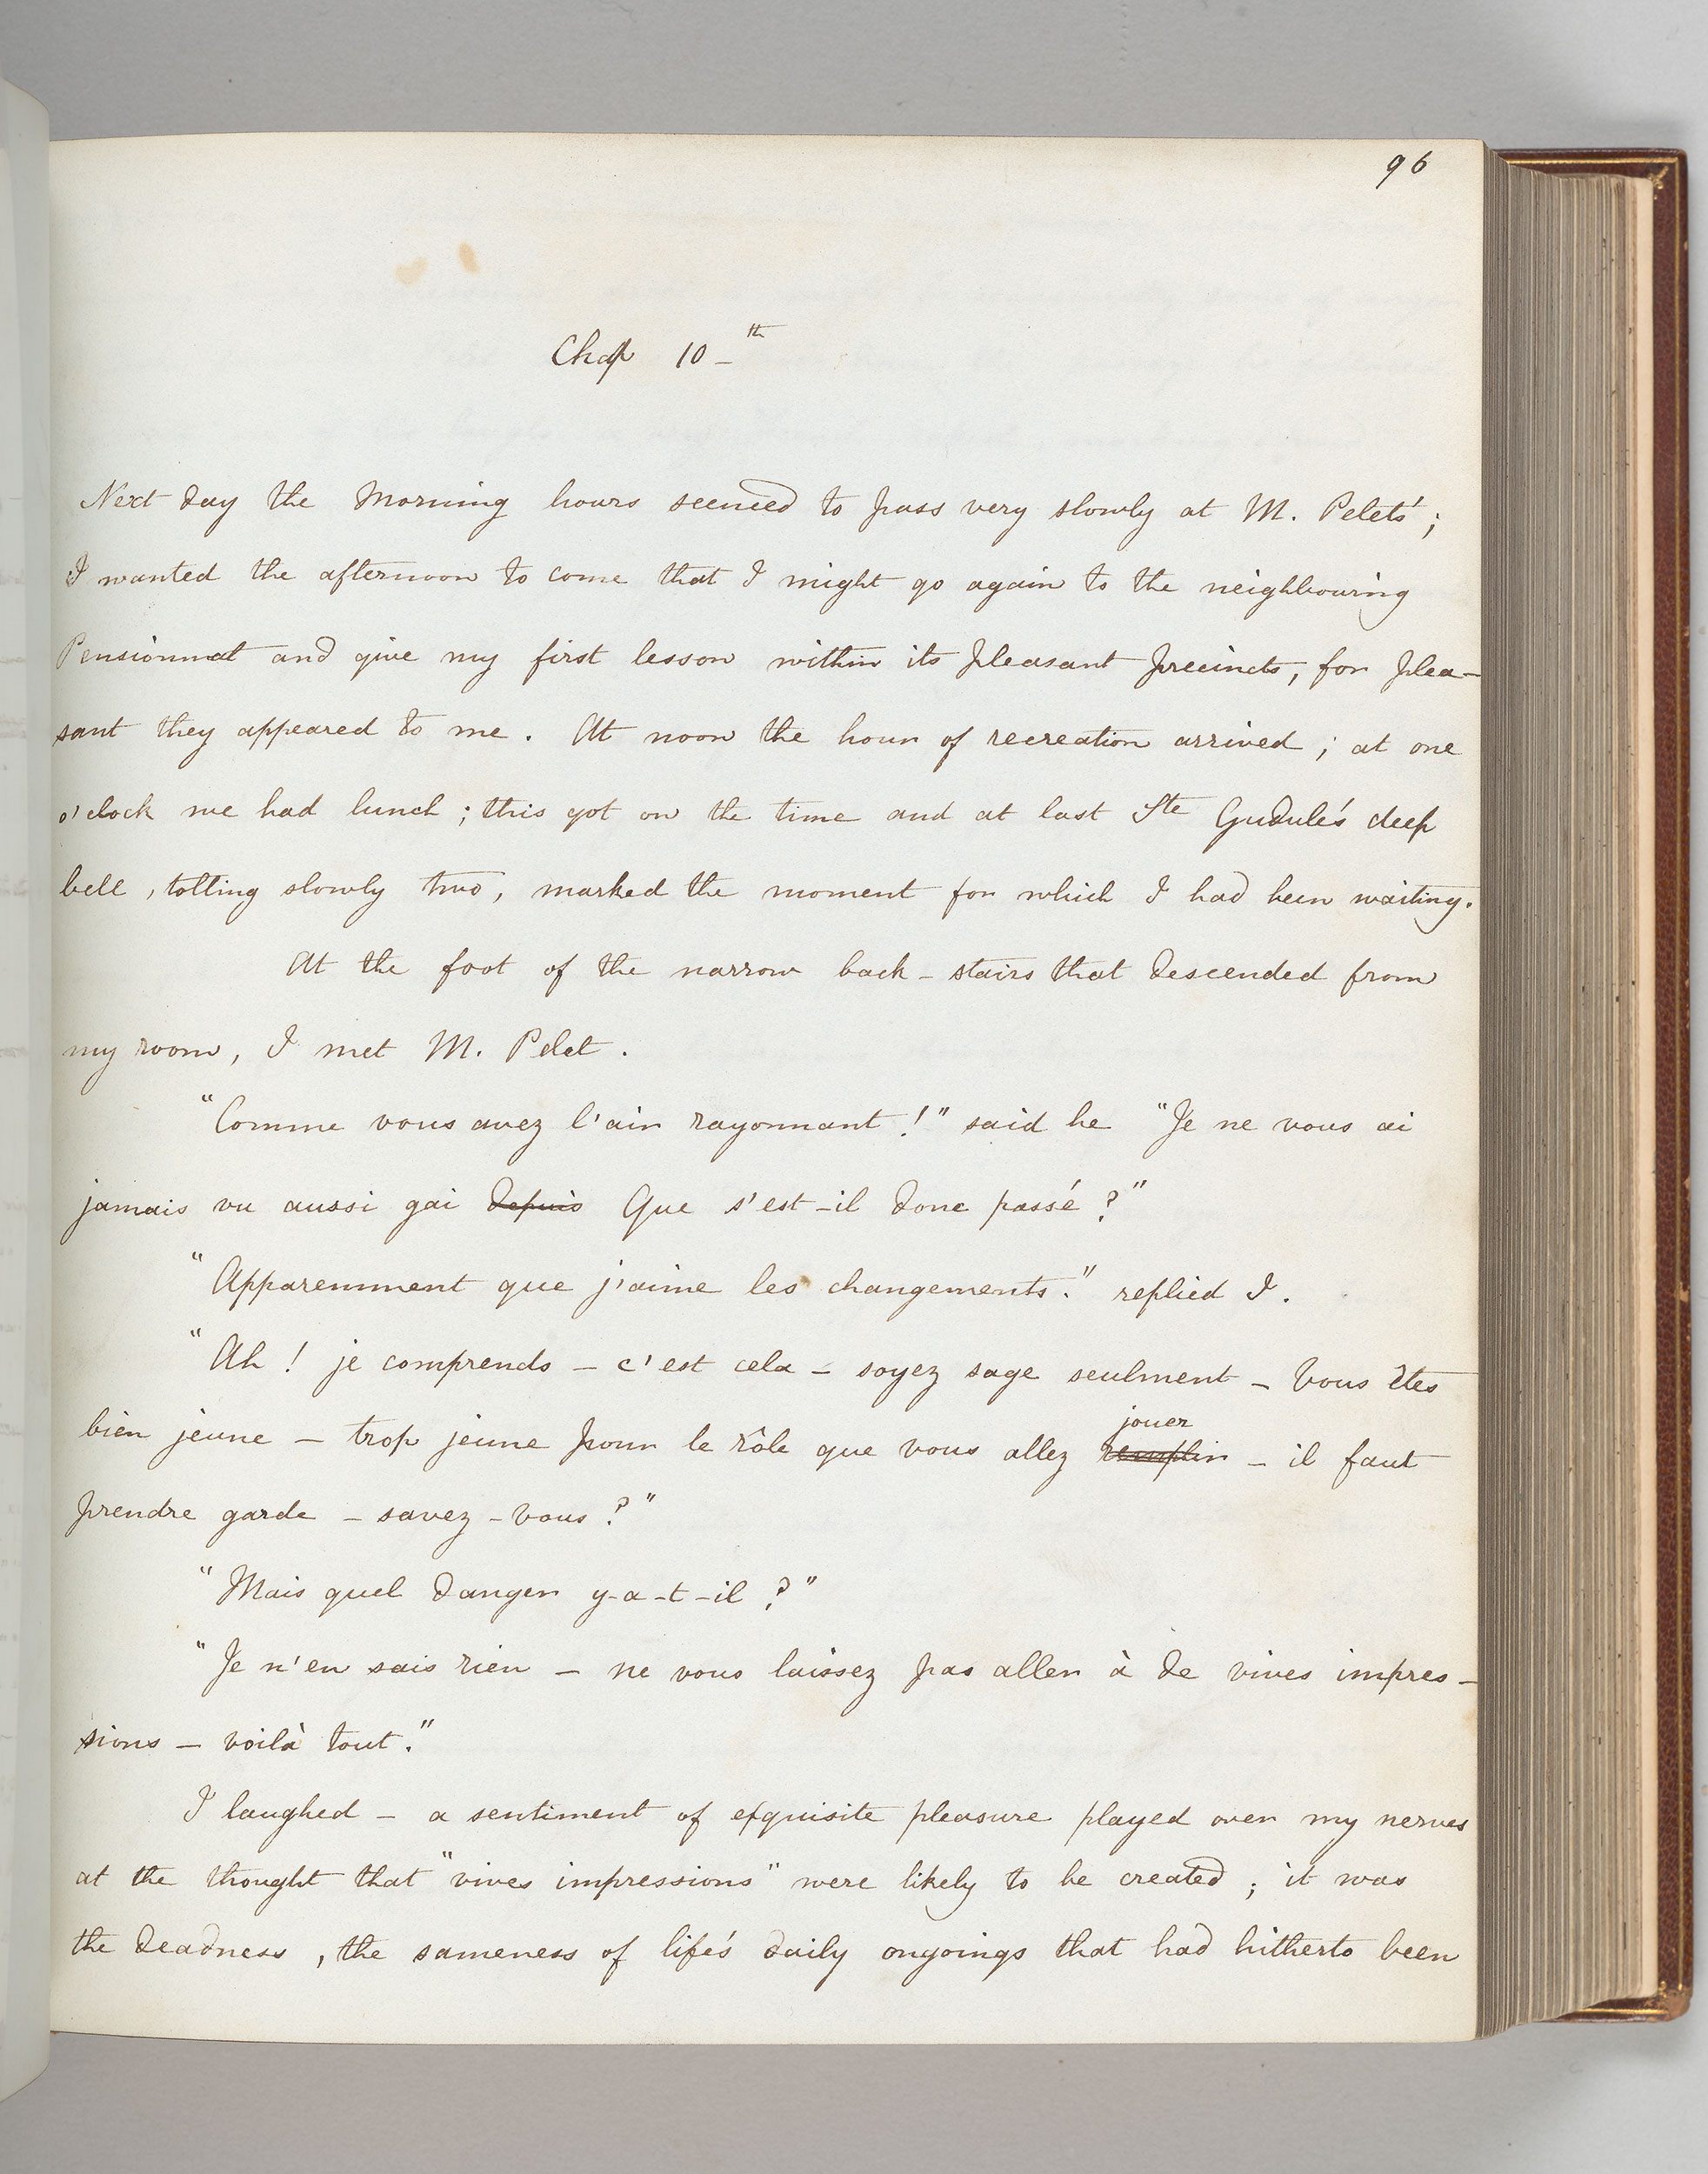 96
Chap 10-th
Next day the Morning hours seemed to pass very slowly at M. Pelet's;
I wanted the afternoon to come that I might go again to the neighbouring
Pensionnat and give my first lesson within its pleasant precincts, for plea-
sant they appeared to me. At noon the hour of recreation arrived; at one
o'clock we had lunch; this got on the time and at last Ste Gudule's deep
bell, tolling slowly two, marked the moment for which I had been waiting.
At the foot of the narrow back-stairs that descended from
my room, I met M. Pelet.
"Comme vous avez l'air rayonnant!" said he "Je ne vous ai
jamais vu aussi gai depuis Que s'est-il donc passé?"
"Apparemment que j'aime les changements." replied I.
"Ah! je comprends - c'est cela - soyez sage seulment - Vous êtes
bien jeune - trop jeune pour le rôle que vous allez remplir jouer - il faut
prendre garde - savez-vous?"
"Mais quel danger y-a-t-il?"
"Je n'en sais rien - ne vous laissez pas aller à de vives impres-
sions - voilà tout."
I laughed - a sentiment of exquisite pleasure played over my nerves
at the thought that "vives impressions" were likely to be created; it was
the deadness, the sameness of life's daily ongoings that had hitherto been